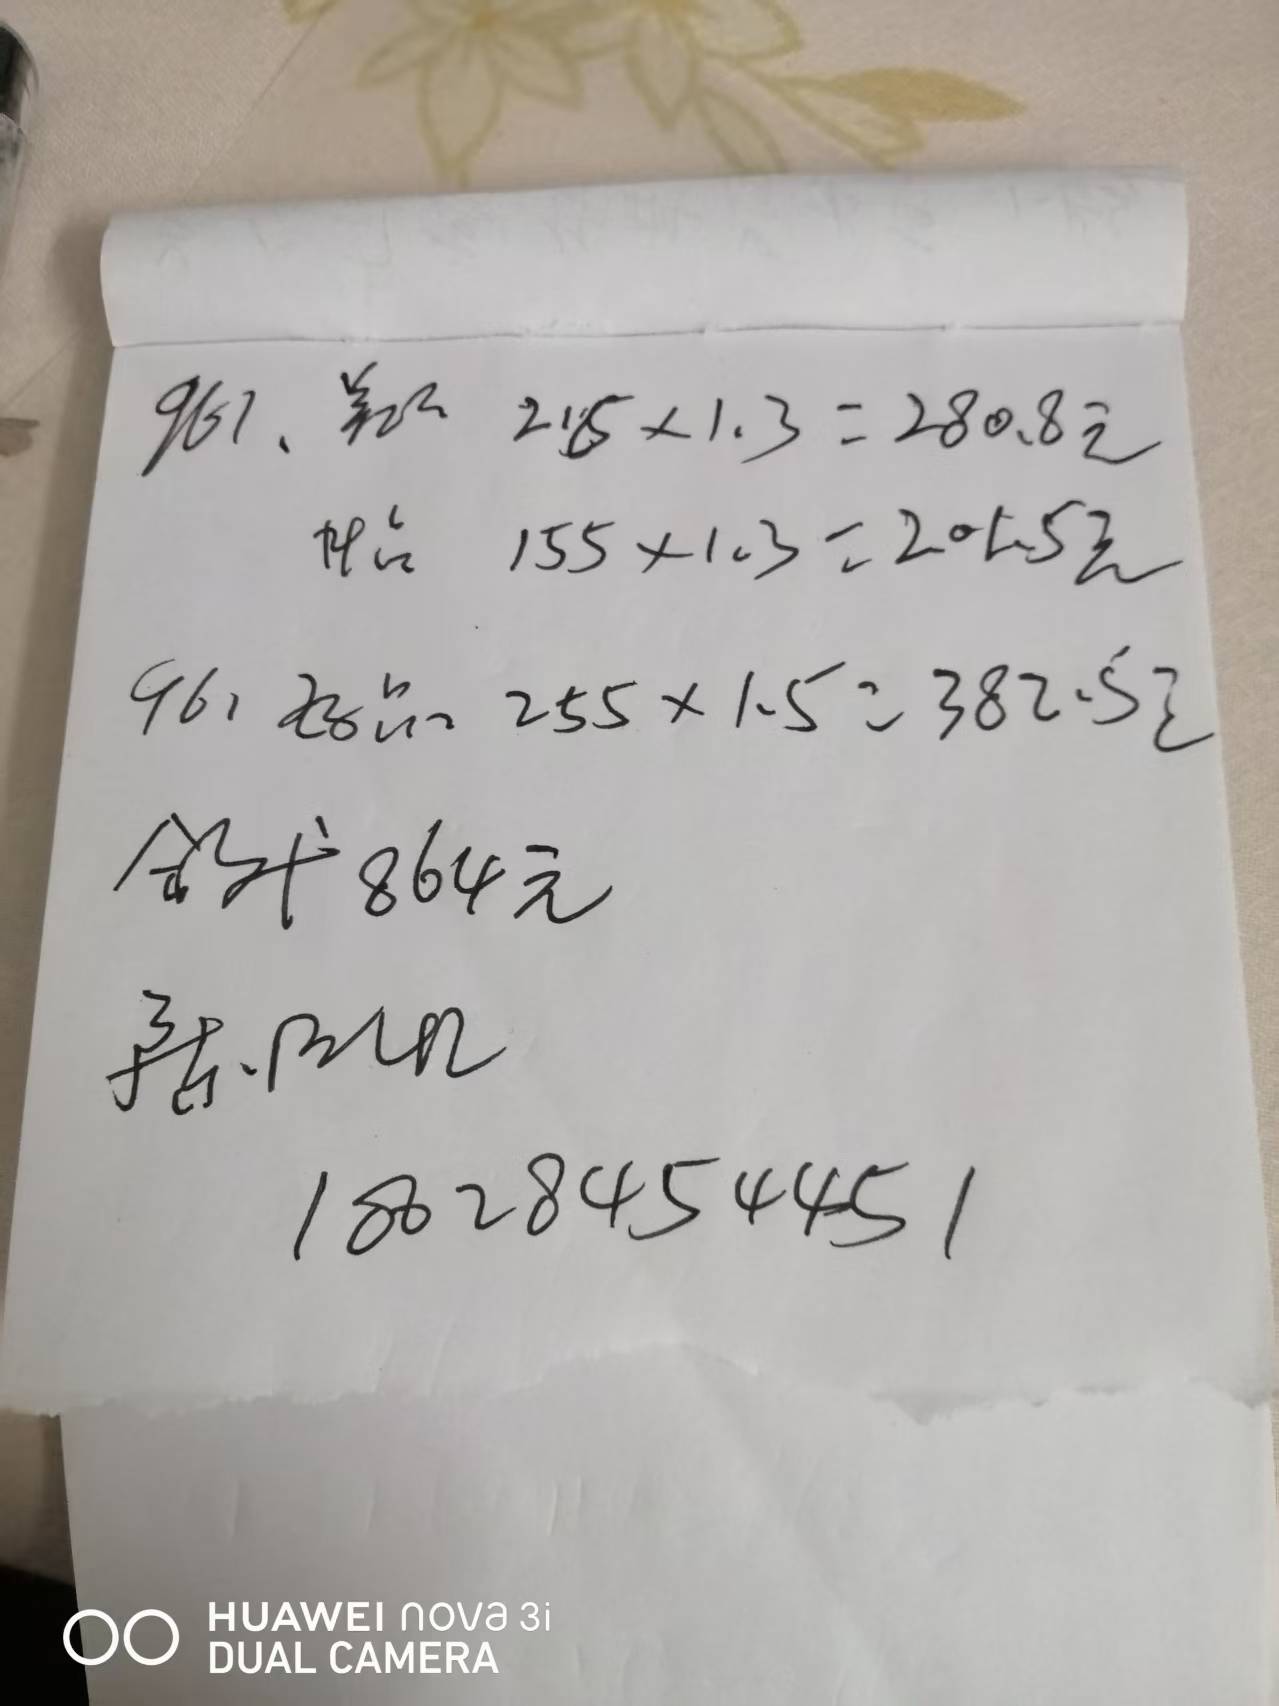 961、 216×1.3=280.8元
155×1.3=201.5元
961 255×1.5=382.5元
合计864元
18028454451
HUAWEI nova 3i
DUAL CAMERA